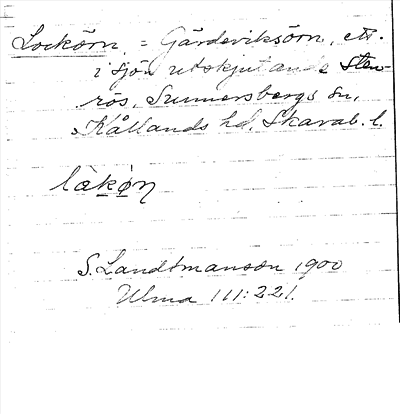 Lockörn, = Gärdeviksörn, ett
i sjön utskjutande Sten-
rös, Sunnersbergs sn,
Kållands hd, Skarab. l.
lækøn
S. Landtmanson 1900
Ulma 111:221.